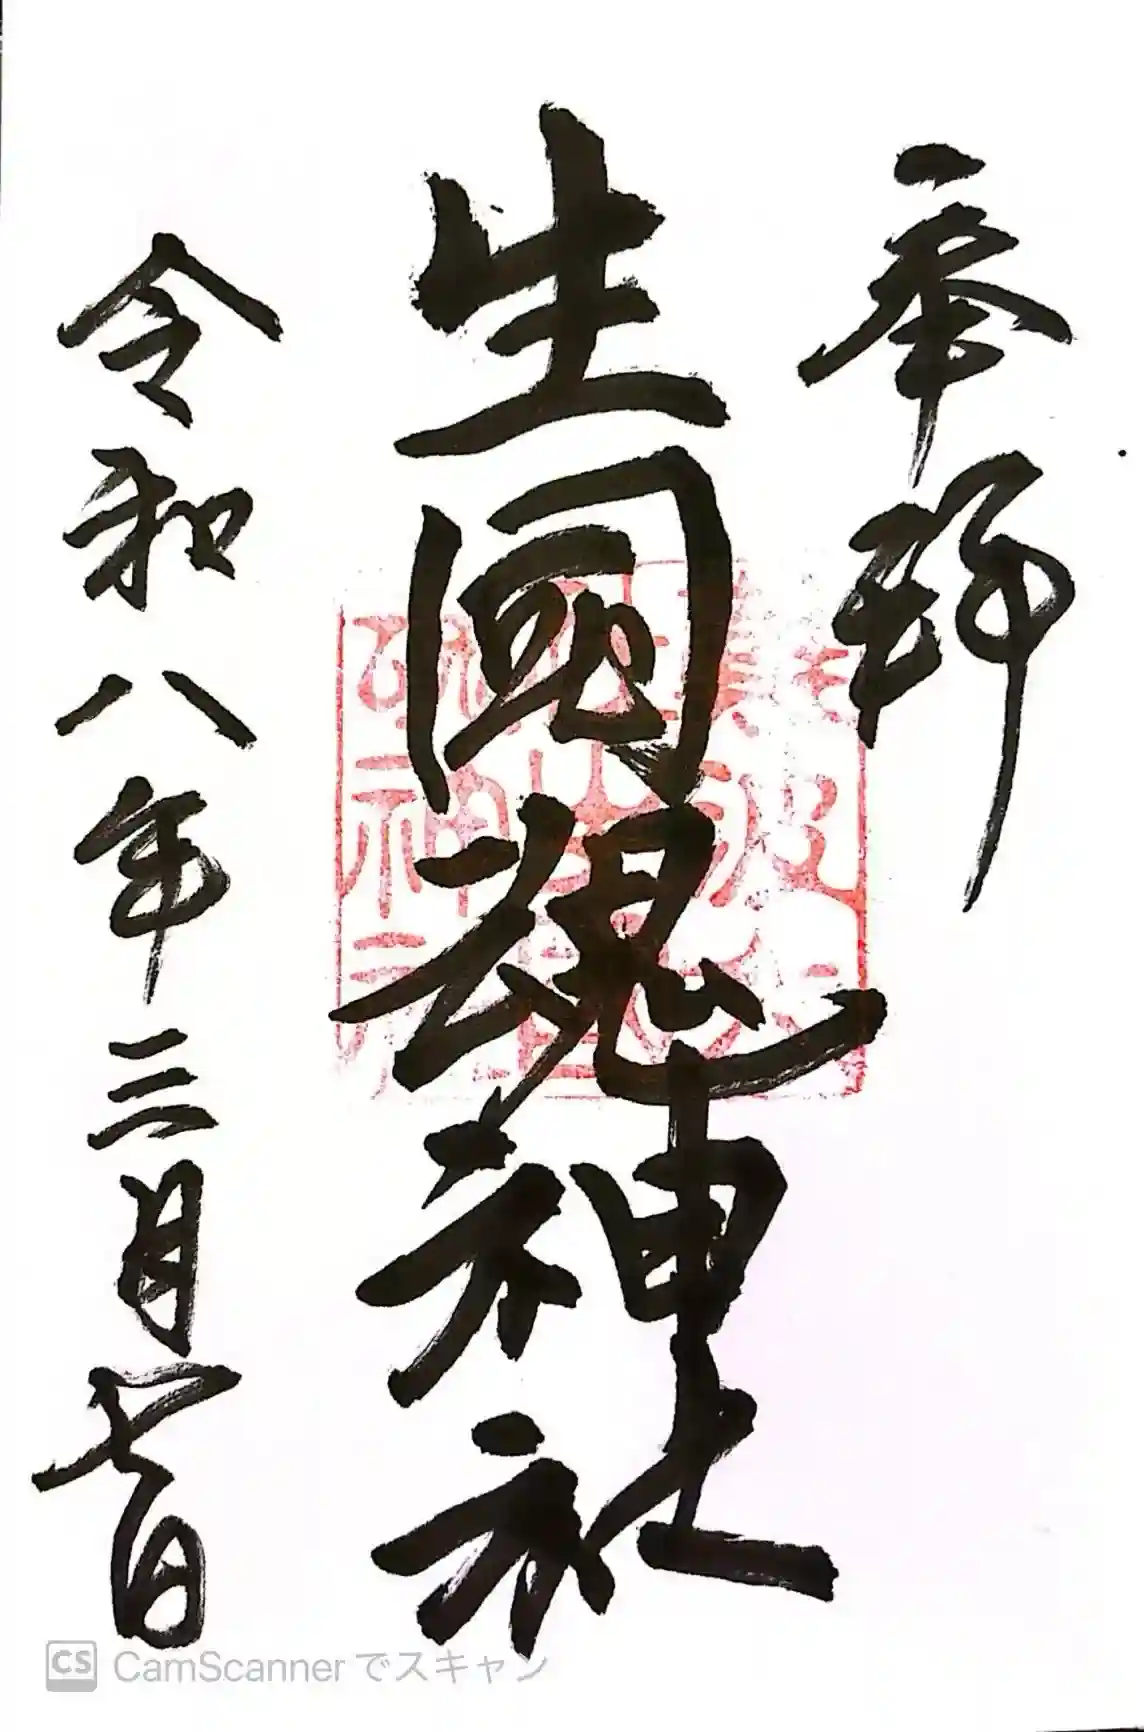 奉拝
生國魂神社
令和八年三月廿七日
CS CamScanner でスキャン